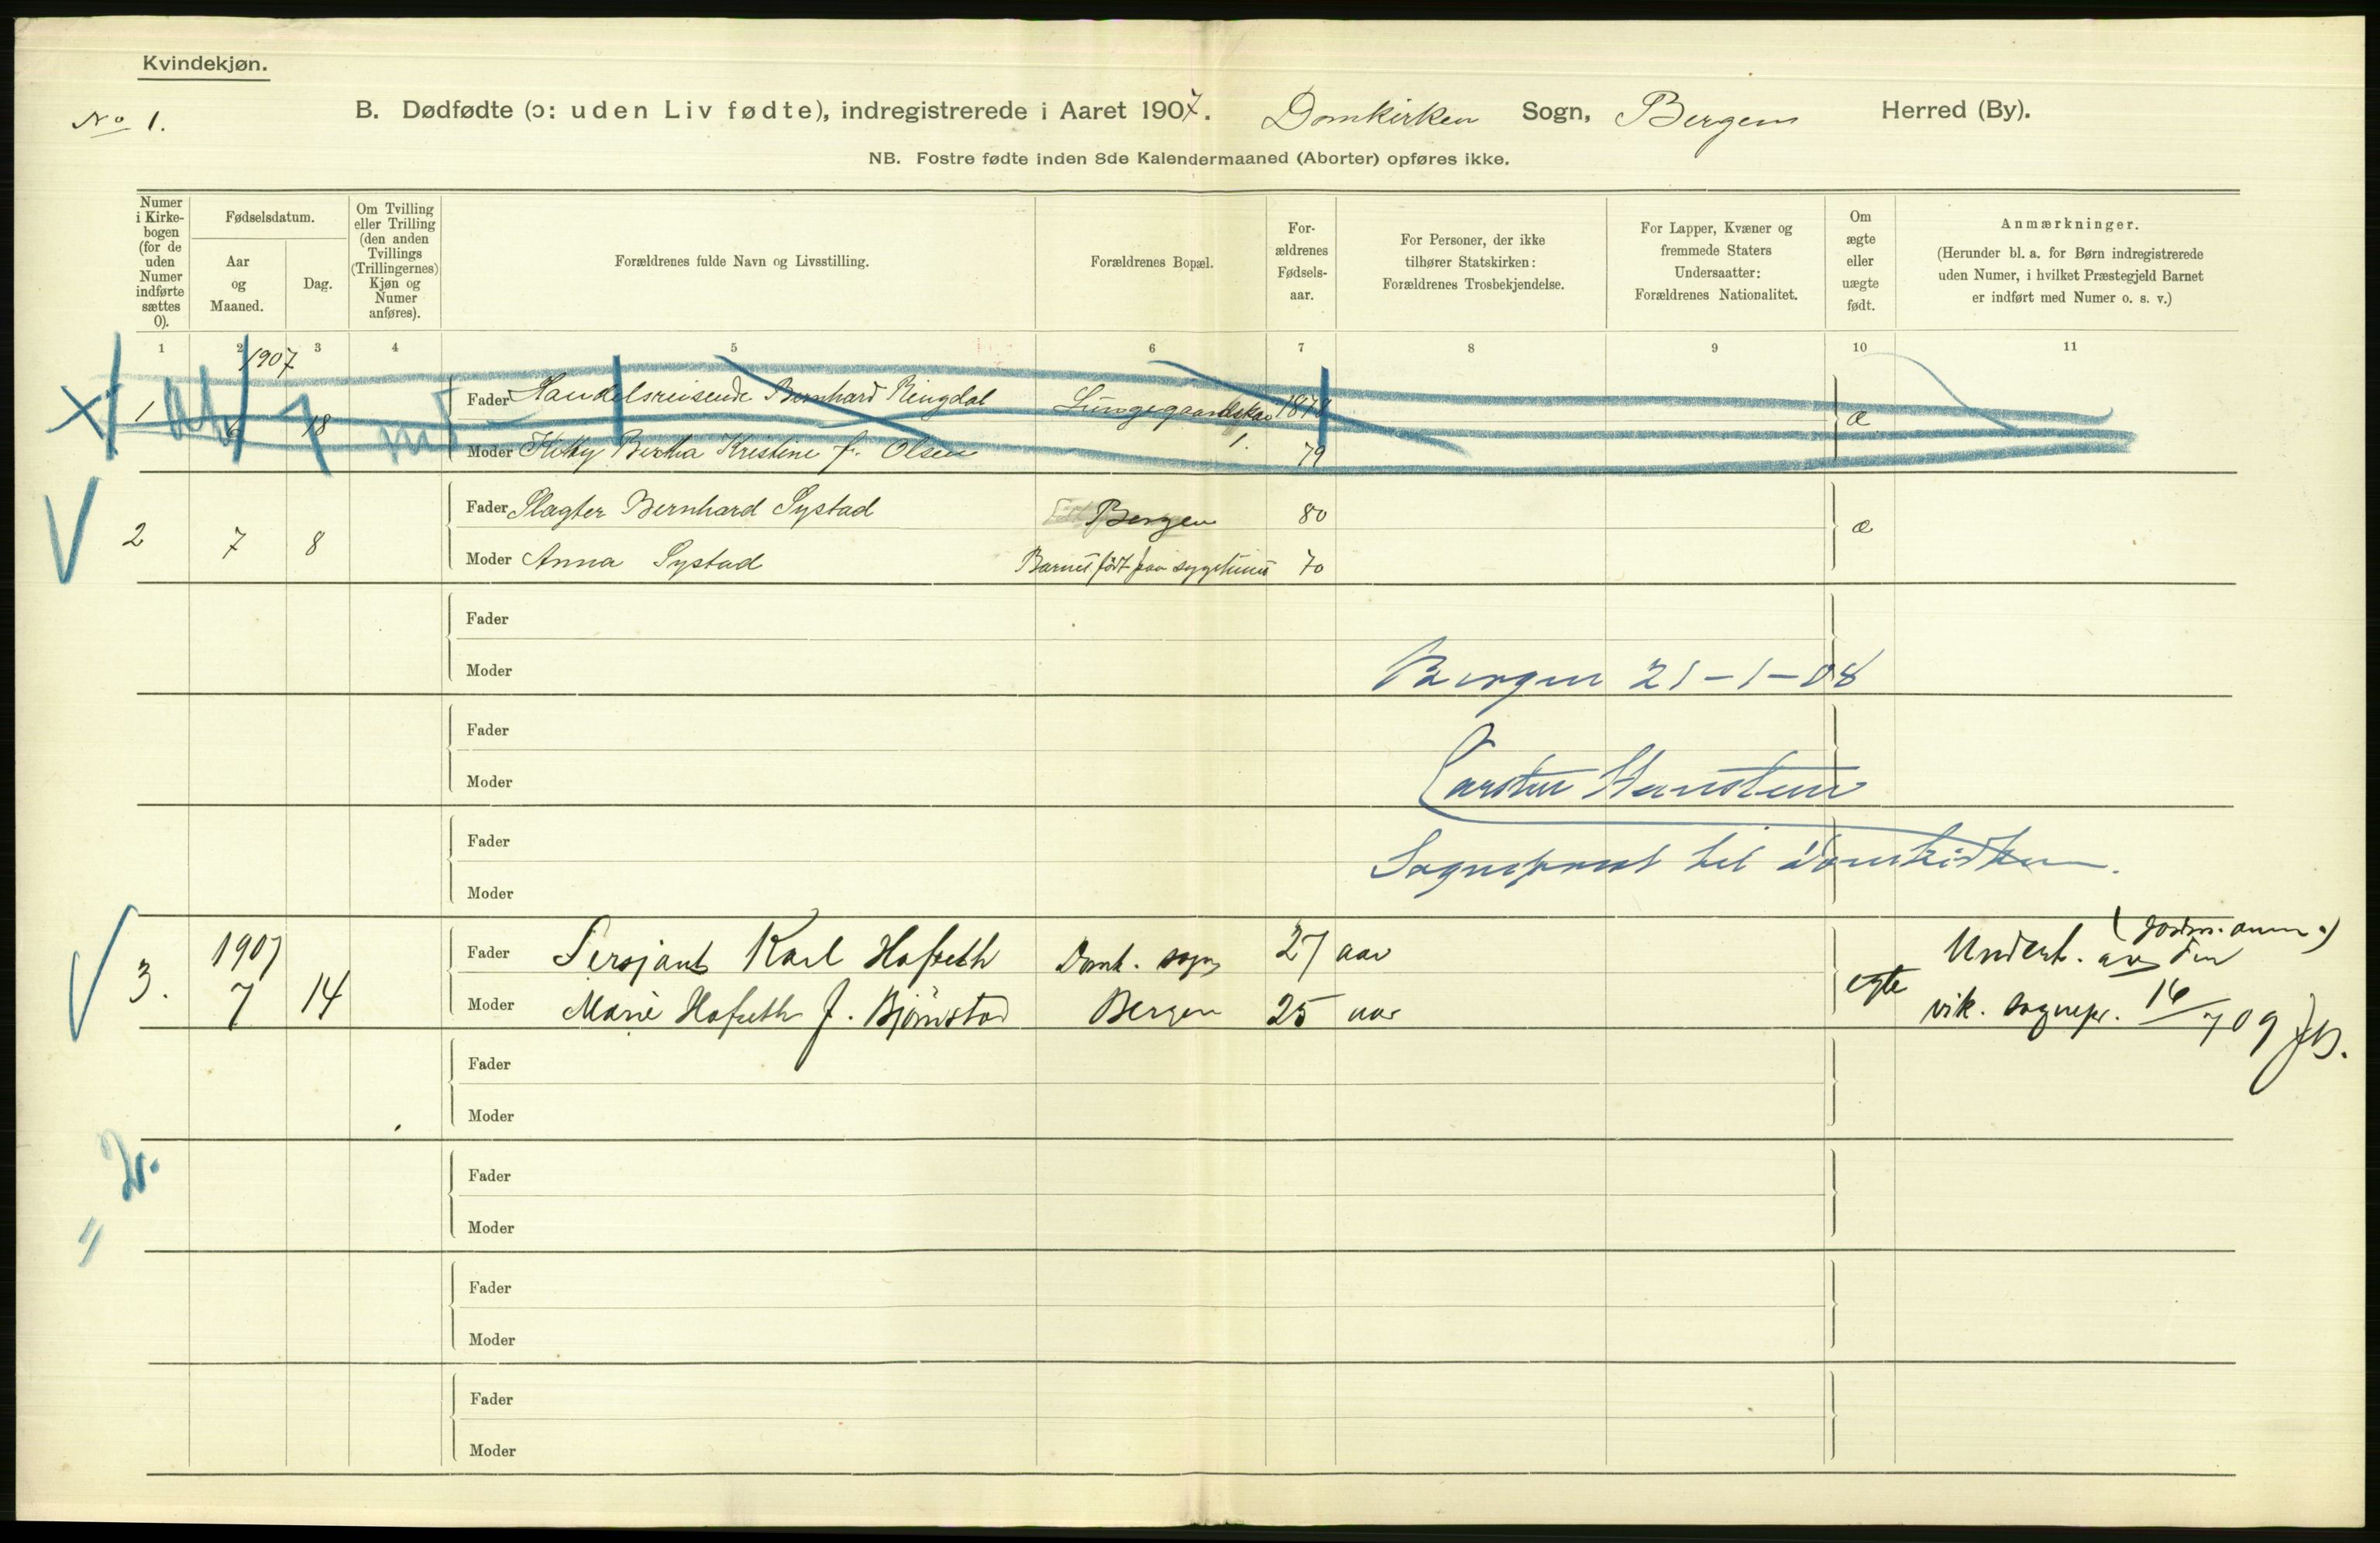 Kvindekjøn.
No 1.
B. Dødfødte (ɔ: uden Liv fødte), indregistrerede i Aaret 1907. Domkirken Sogn, Bergen Herred (By).
NB. Fostre fødte inden 8de Kalendermaaned (Aborter) opføres ikke.
Numer i Kirkebogen (for de uden Numer indførte sættes 0).
Fødselsdatum.
Aar og Maaned.
Dag.
Om Tvilling eller Trilling (den anden Tvillings (Trillingernes) Kjøn og Numer anføres).
Forældrenes fulde Navn og Livsstilling.
Forældrenes Bopæl.
Forældrenes Fødselsaar.
For Personer, der ikke tilhører Statskirken: Forældrenes Trosbekjendelse.
For Lapper, Kvæner og fremmede Staters Undersaatter: Forældrenes Nationalitet.
Om ægte eller uægte født.
Anmærkninger.
(Herunder bl. a. for Børn indregistrerede uden Numer, i hvilket Præstegjeld Barnet er indført med Numer o. s. v.)
1 2 3 4 5 6 7 8 9 10 11
1907
1 6 18 Fader Handelsreisende Bernhard Ringdal 187 æ
Moder Kitty Bertha Kristine f. Olsen 1. 79
2 7 8 Fader Slagter Bernhard Systad Bergen 80 æ
Moder Anna Systad Barnet født paa sygehuset 70
Fader
Moder Bergen 21-1-08
Fader
Moder Carsten Hansteen
Fader
Sogneprest til Domkirken.
Moder
1907
3. 7 14 Fader Sersjant Karl Hofseth Domk. sogn 27 aar egte Undert. av den
Moder Marie Hofseth f. Bjørnstad Bergen 25 aar vik. sognepr. 16/7 09
Fader
Moder
Fader
Moder
Fader
Moder
Fader
Moder